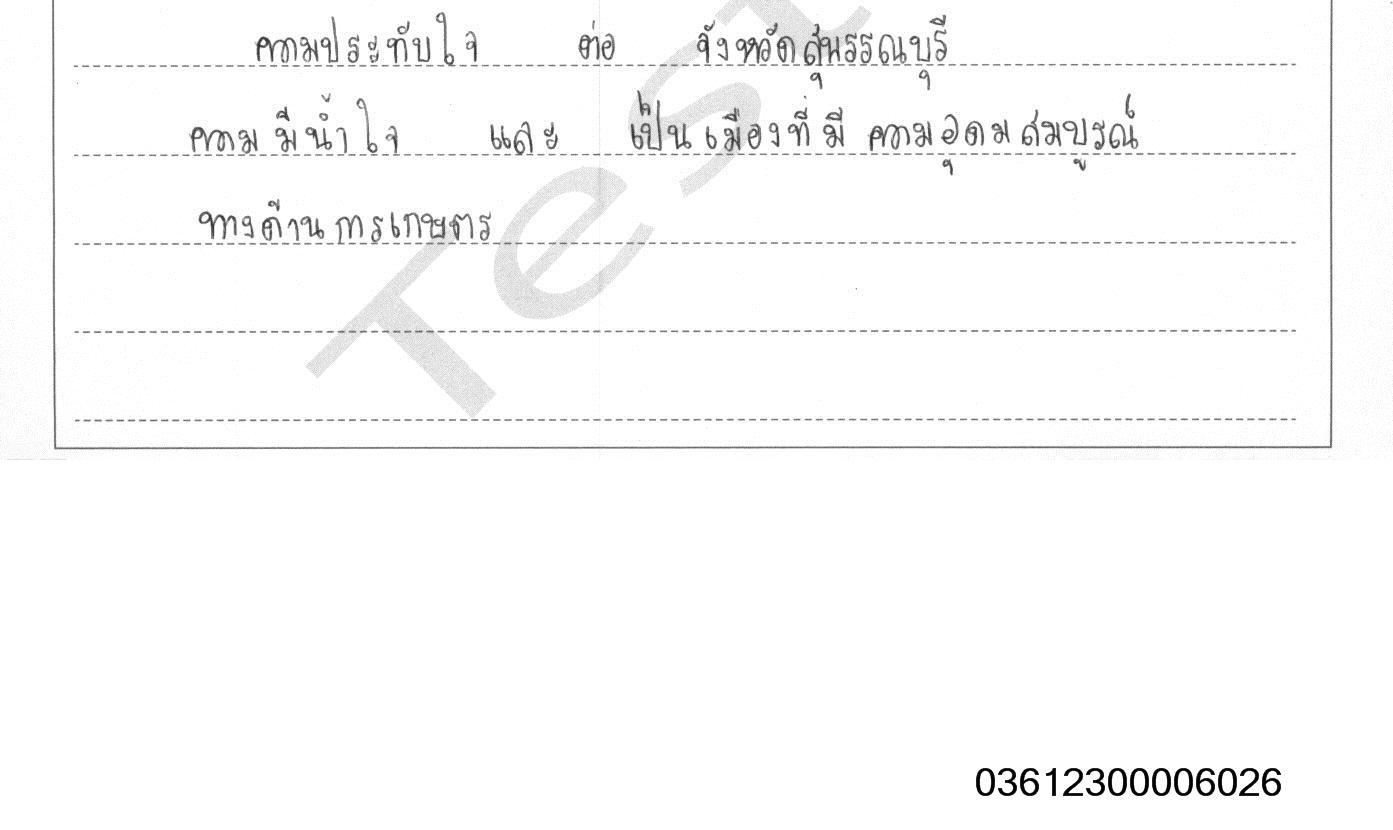 ความประทับใจ ต่อ จังหวัดสุพรรณบุรี
ความมีน้ำใจ และ เป็นเมืองที่มีความอุดมสมบูรณ์
ทางด้านการเกษตร
Test
03612300006026